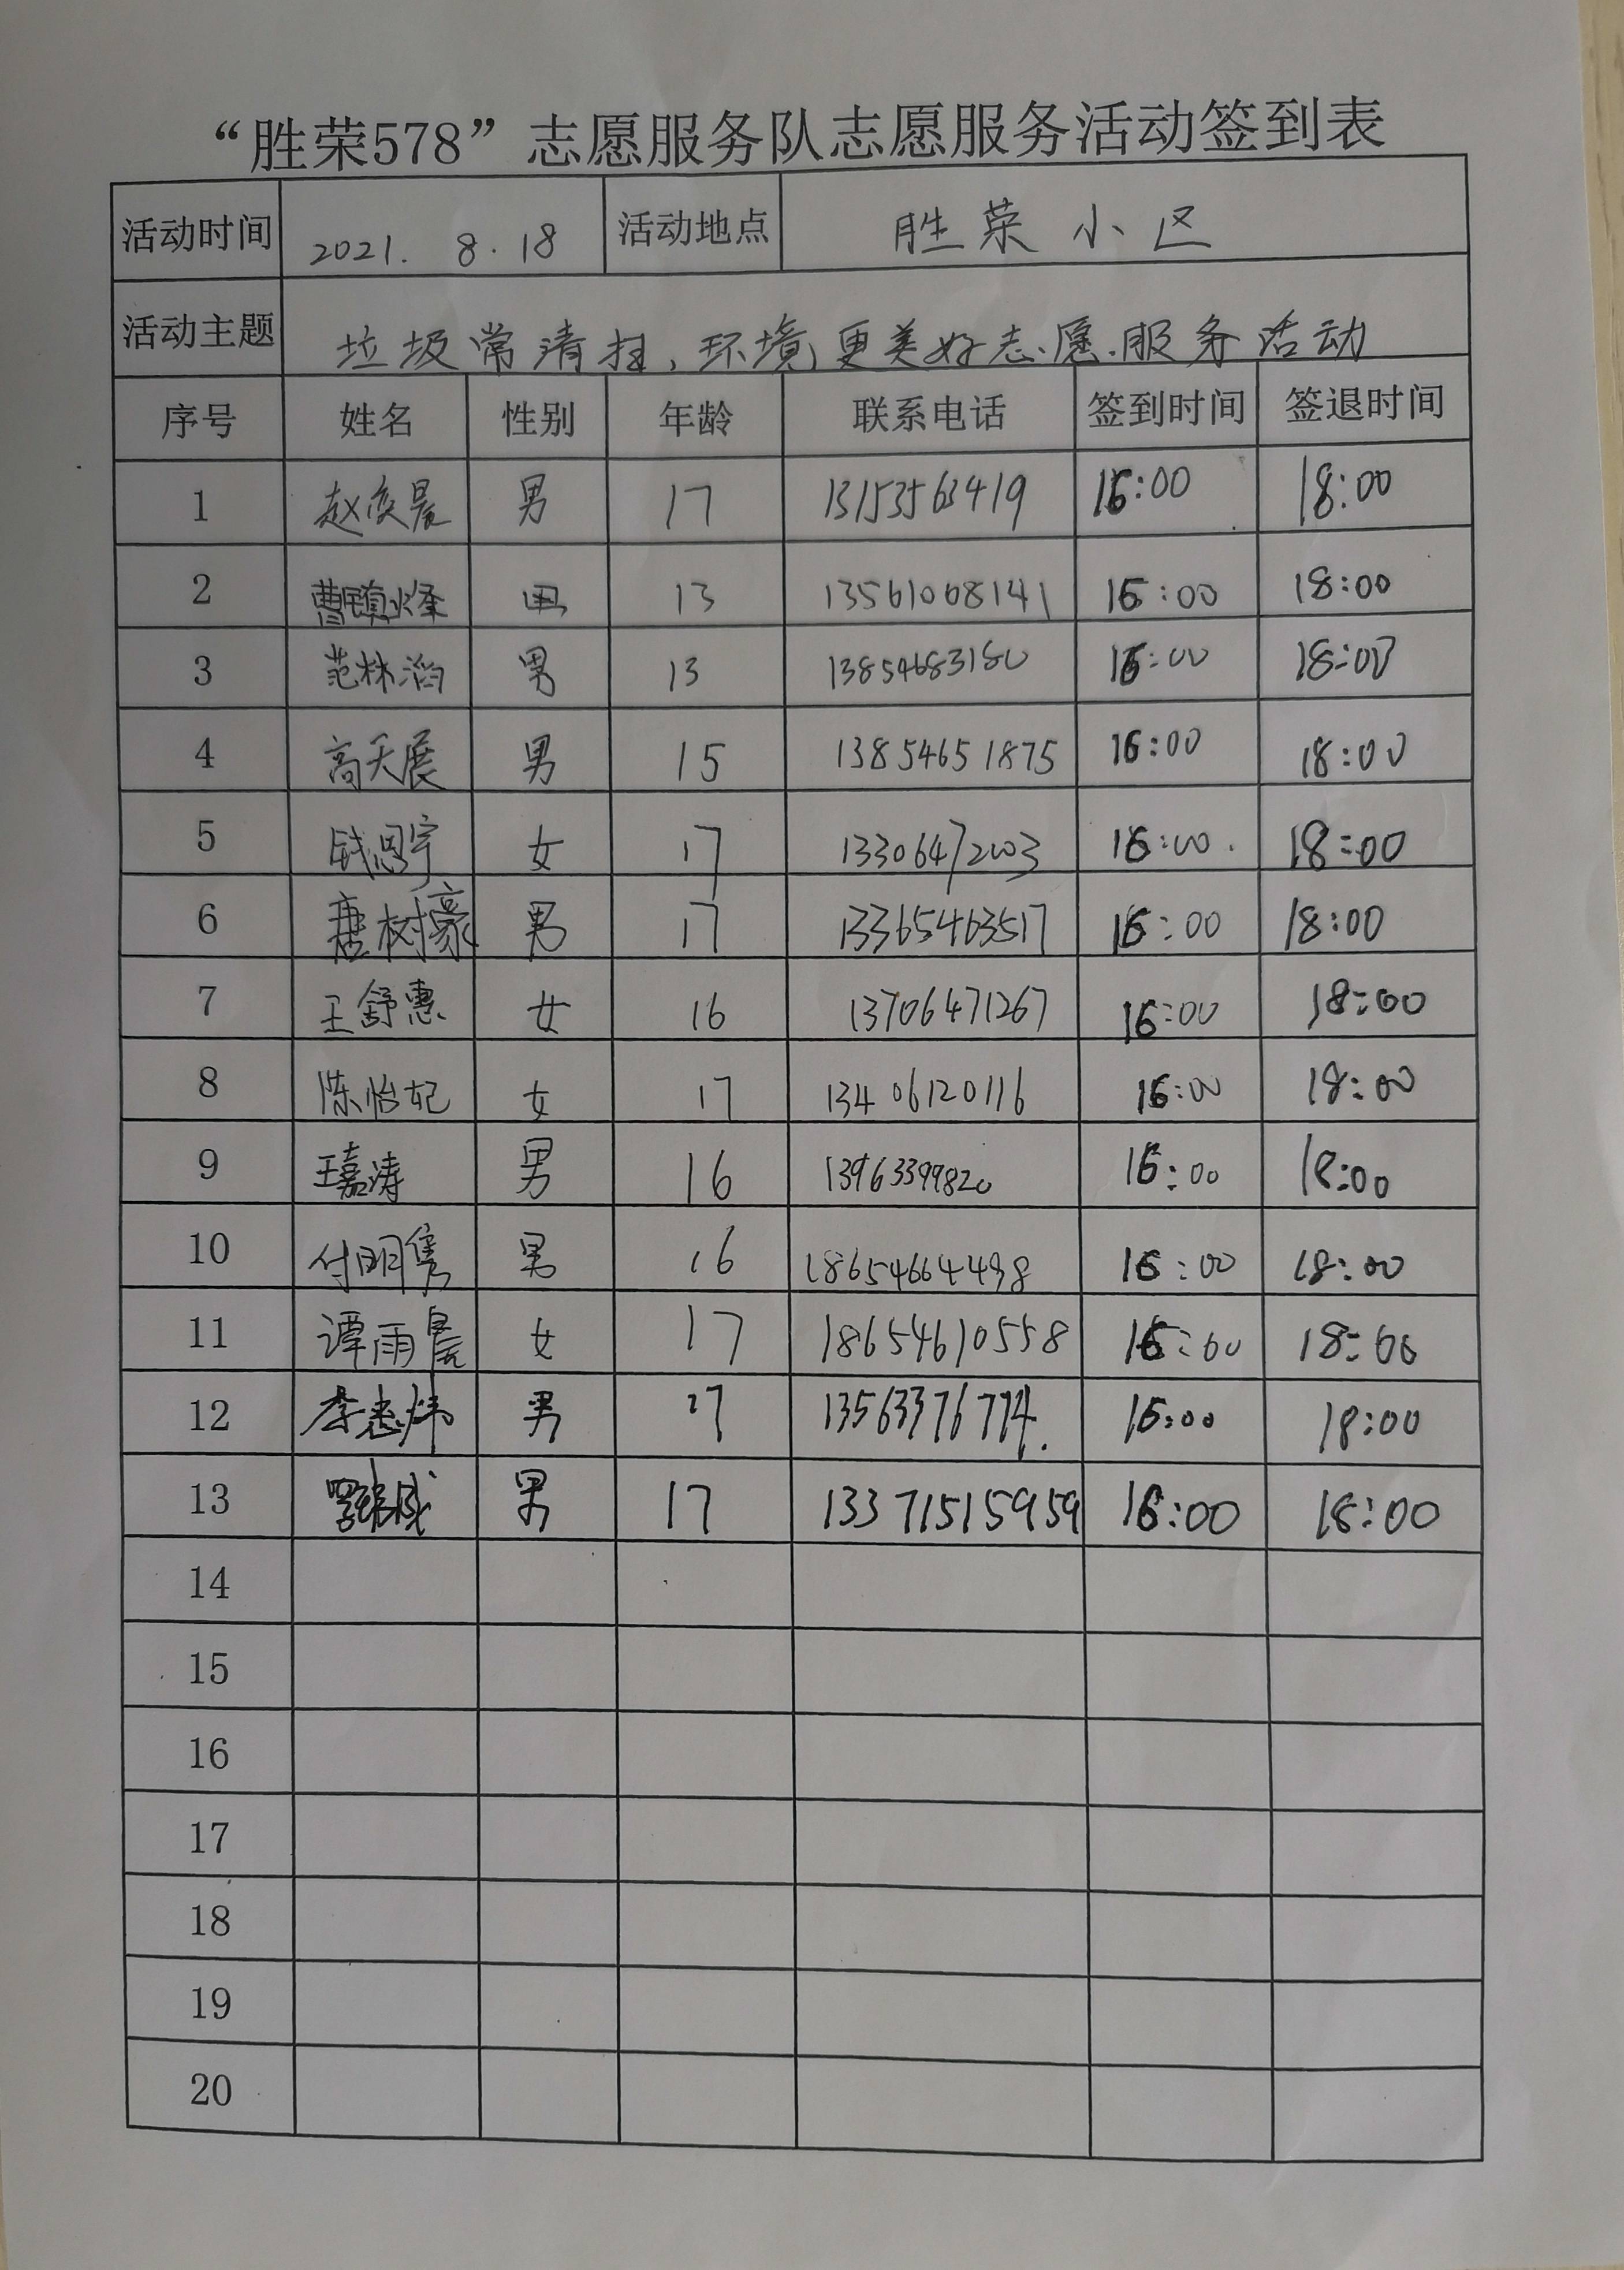 “胜荣578”志愿服务队志愿服务活动签到表
活动时间 2021. 8.18 活动地点 胜荣小区
活动主题 垃圾常清扫,环境更美好志愿服务活动
序号 姓名 性别 年龄 联系电话 签到时间 签退时间
1 赵俊晨 男 17 13153563419 16:00 18:00
2 男 13 13561068141 16:00 18:00
3 范林滔 男 13 13854683180 16:00 18:00
4 高天展 男 15 13854651875 16:00 18:00
5 钱思宇 女 17 13306472003 16:00 18:00
6 唐树豪 男 17 13365463517 16:00 18:00
7 王舒惠 女 16 13706471267 16:00 18:00
8 陈怡妃 女 17 13406120116 16:00 18:00
9 王嘉涛 男 16 13963399820 16:00 18:00
10 付明隽 男 16 18654664498 16:00 18:00
11 谭雨晨 女 17 18654610558 16:00 18:00
12 男 17 16:00 18:00
13 男 17 13371515959 16:00 18:00
14
15
16
17
18
19
20